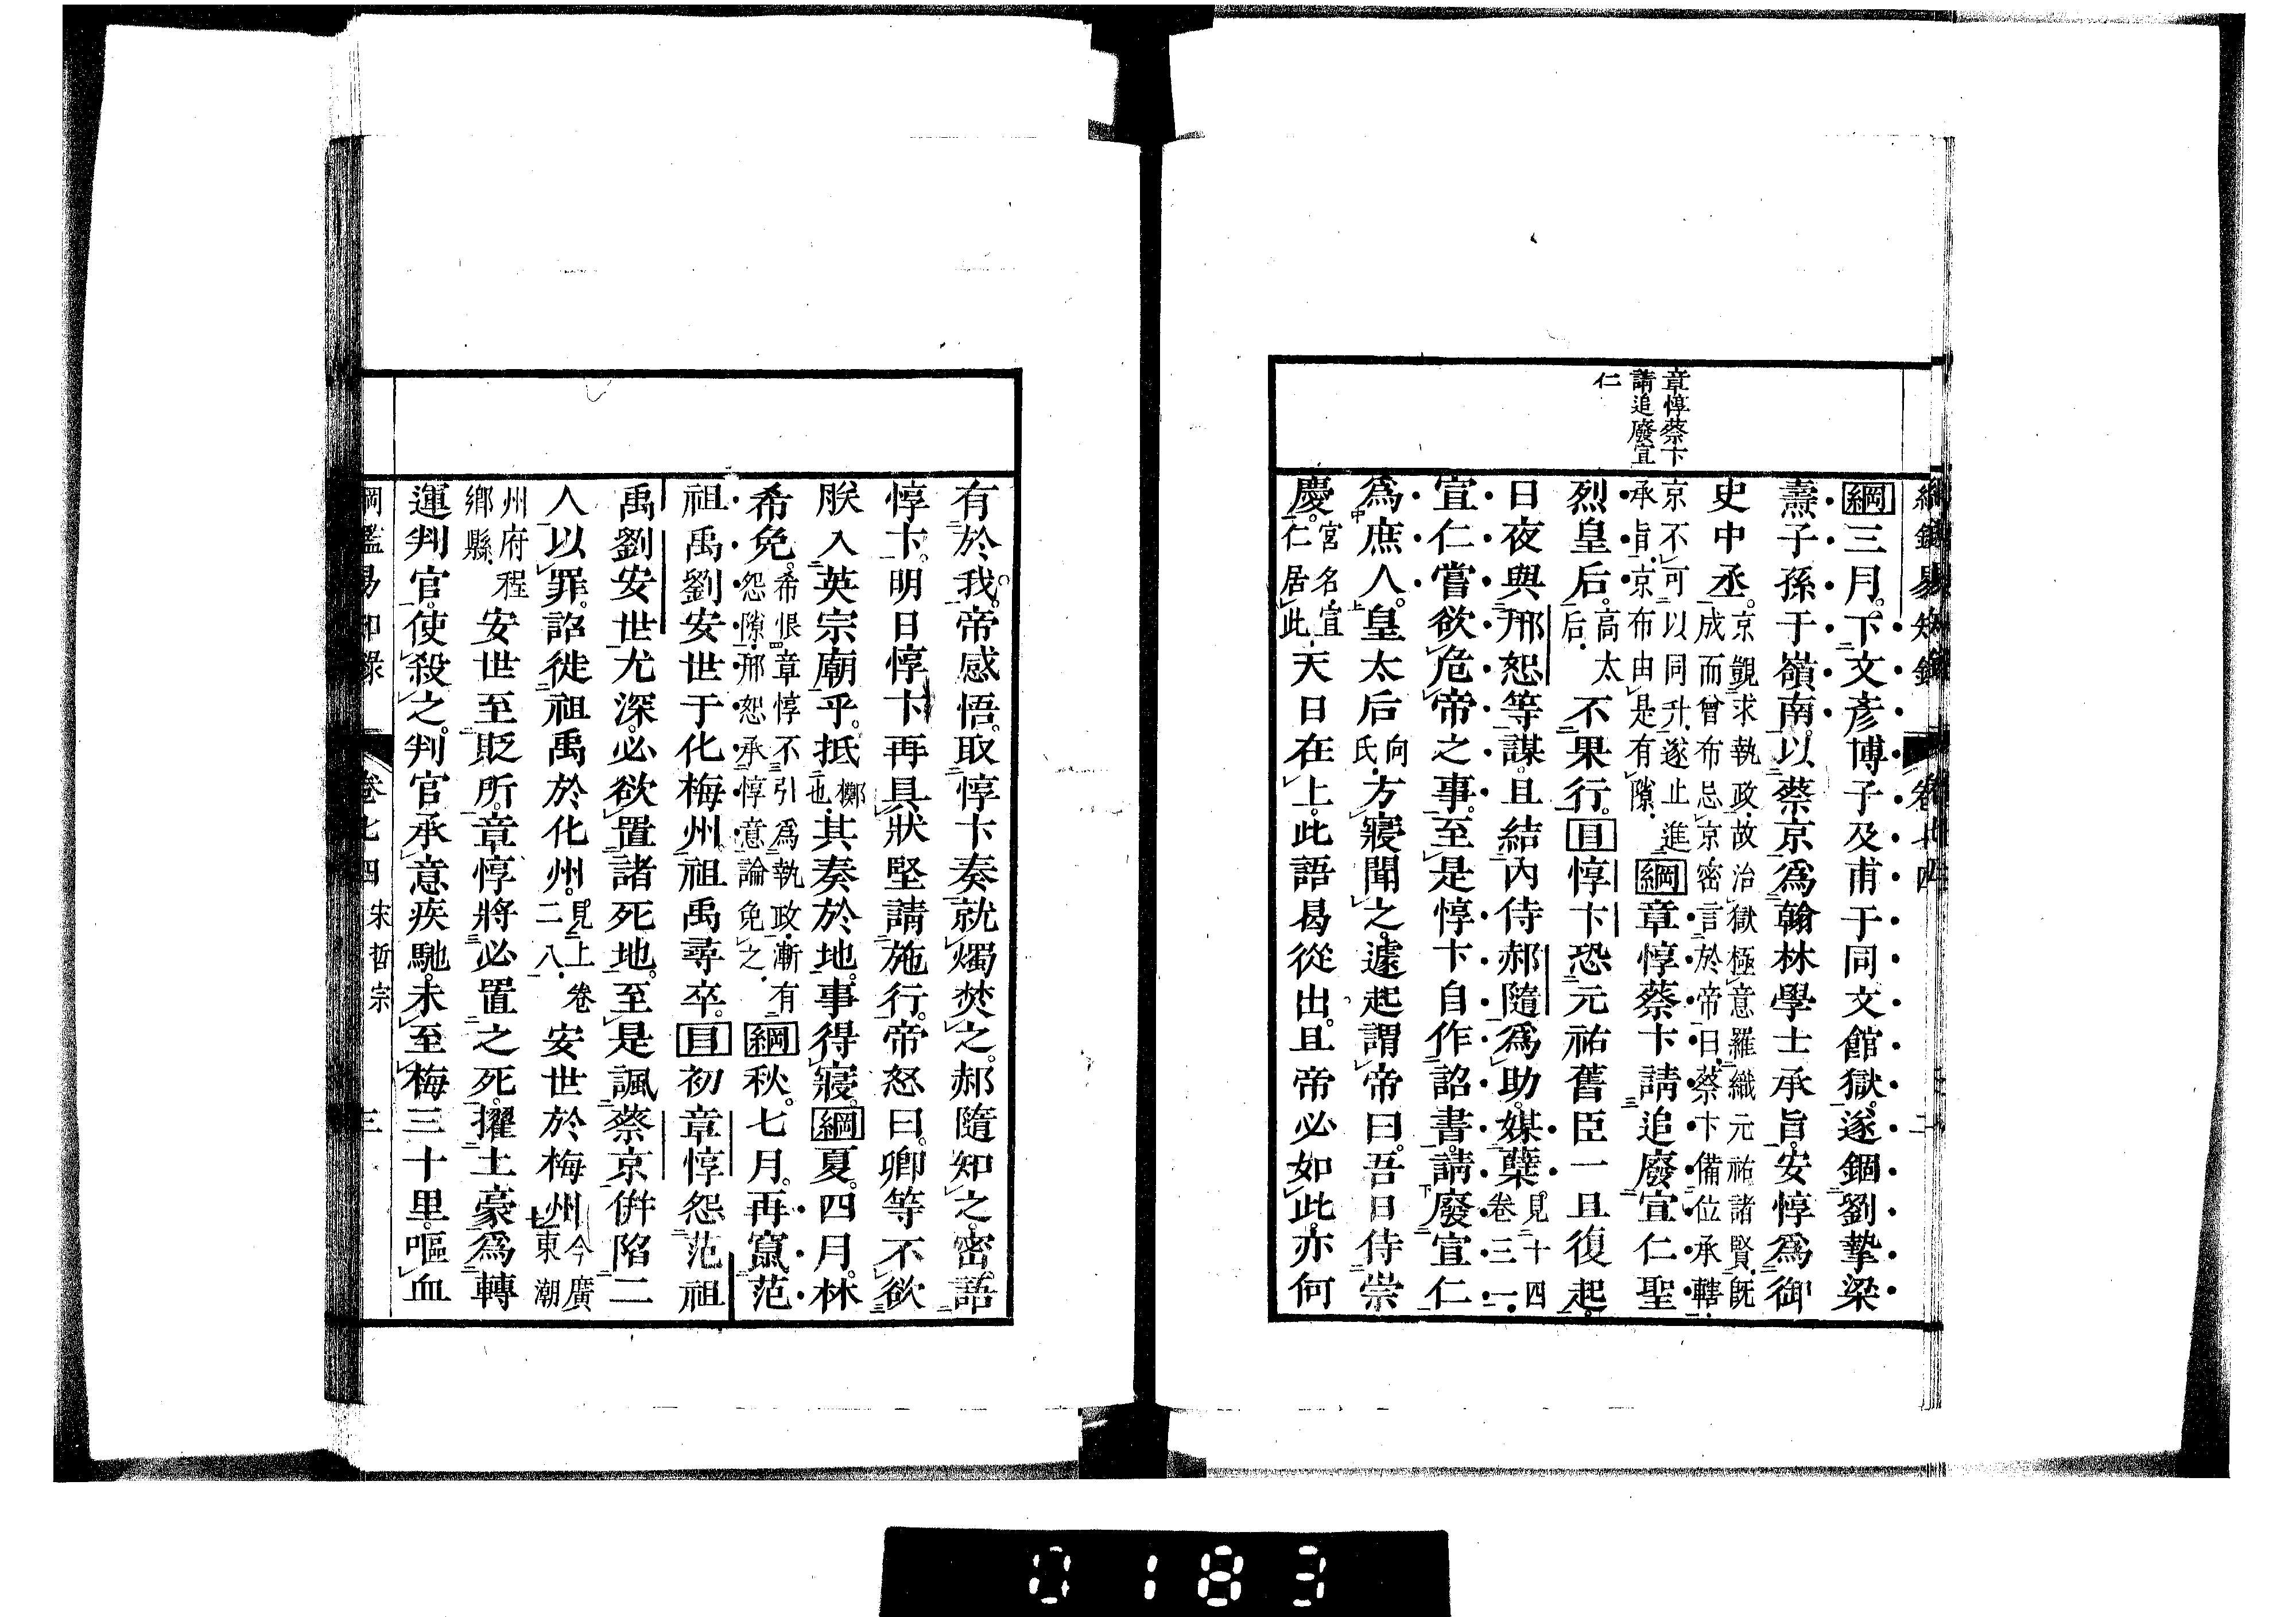 章惇蔡卞
請追廢宣
仁
綱三月。下文彥博子及甫于同文館獄。遂錮劉摯梁
燾子孫于嶺南。以蔡京爲翰林學士承旨。安惇爲御
史中丞。京覬求執政。故治獄極意羅織元祐諸賢。旣
成而曾布忌京密言於帝曰。蔡卞備位承轄。
京不可以同升。遂止進
承旨。京布由是有隙。綱章惇蔡卞請追廢宣仁聖
烈皇后。高太后。不果行。目惇卞恐元祐舊臣一旦復起。
日夜與邢恕等謀。且結內侍郝隨爲助。媒蘖。見十四卷三一。
宣仁嘗欲危帝之事。至是惇卞自作詔書。請廢宣仁
爲庶人。皇太后向氏。方寢聞之。遽起謂帝曰。吾日侍崇
慶。宮名。宣仁居此。天日在上。此語曷從出。且帝必如此。亦何
有於我。帝感悟。取惇卞奏。就燭焚之。郝隨知之。密語
惇卞。明日惇卞再具狀堅請施行。帝怒曰。卿等不欲
朕入英宗廟乎。抵擲也。其奏於地。事得寢。綱夏。四月。林
希免。希恨章惇不引爲執政。漸有怨隙。邢恕承惇意論免之。綱秋。七月。再竄范
祖禹劉安世于化梅州。祖禹尋卒。目初章惇怨范祖
禹劉安世尤深。必欲置諸死地。至是諷蔡京倂陷二
人以罪。詔徙祖禹於化州。見上卷二八。安世於梅州。今廣東潮
州府程鄉縣。安世至貶所。章惇將必置之死。擢土豪爲轉
運判官。使殺之。判官承意疾馳。未至梅三十里。嘔血
綱鑑易知錄 卷七四 宋哲宗 三
0183